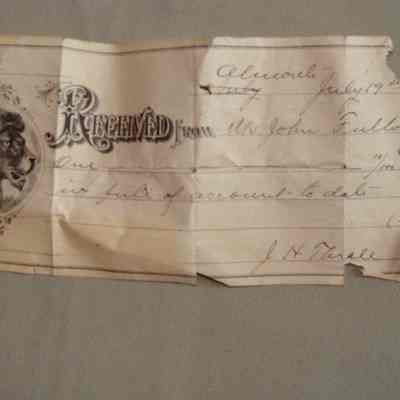 Almonte
July 19
RECEIVED FROM Mr John
One /100
in full of account to date
J H Thrale